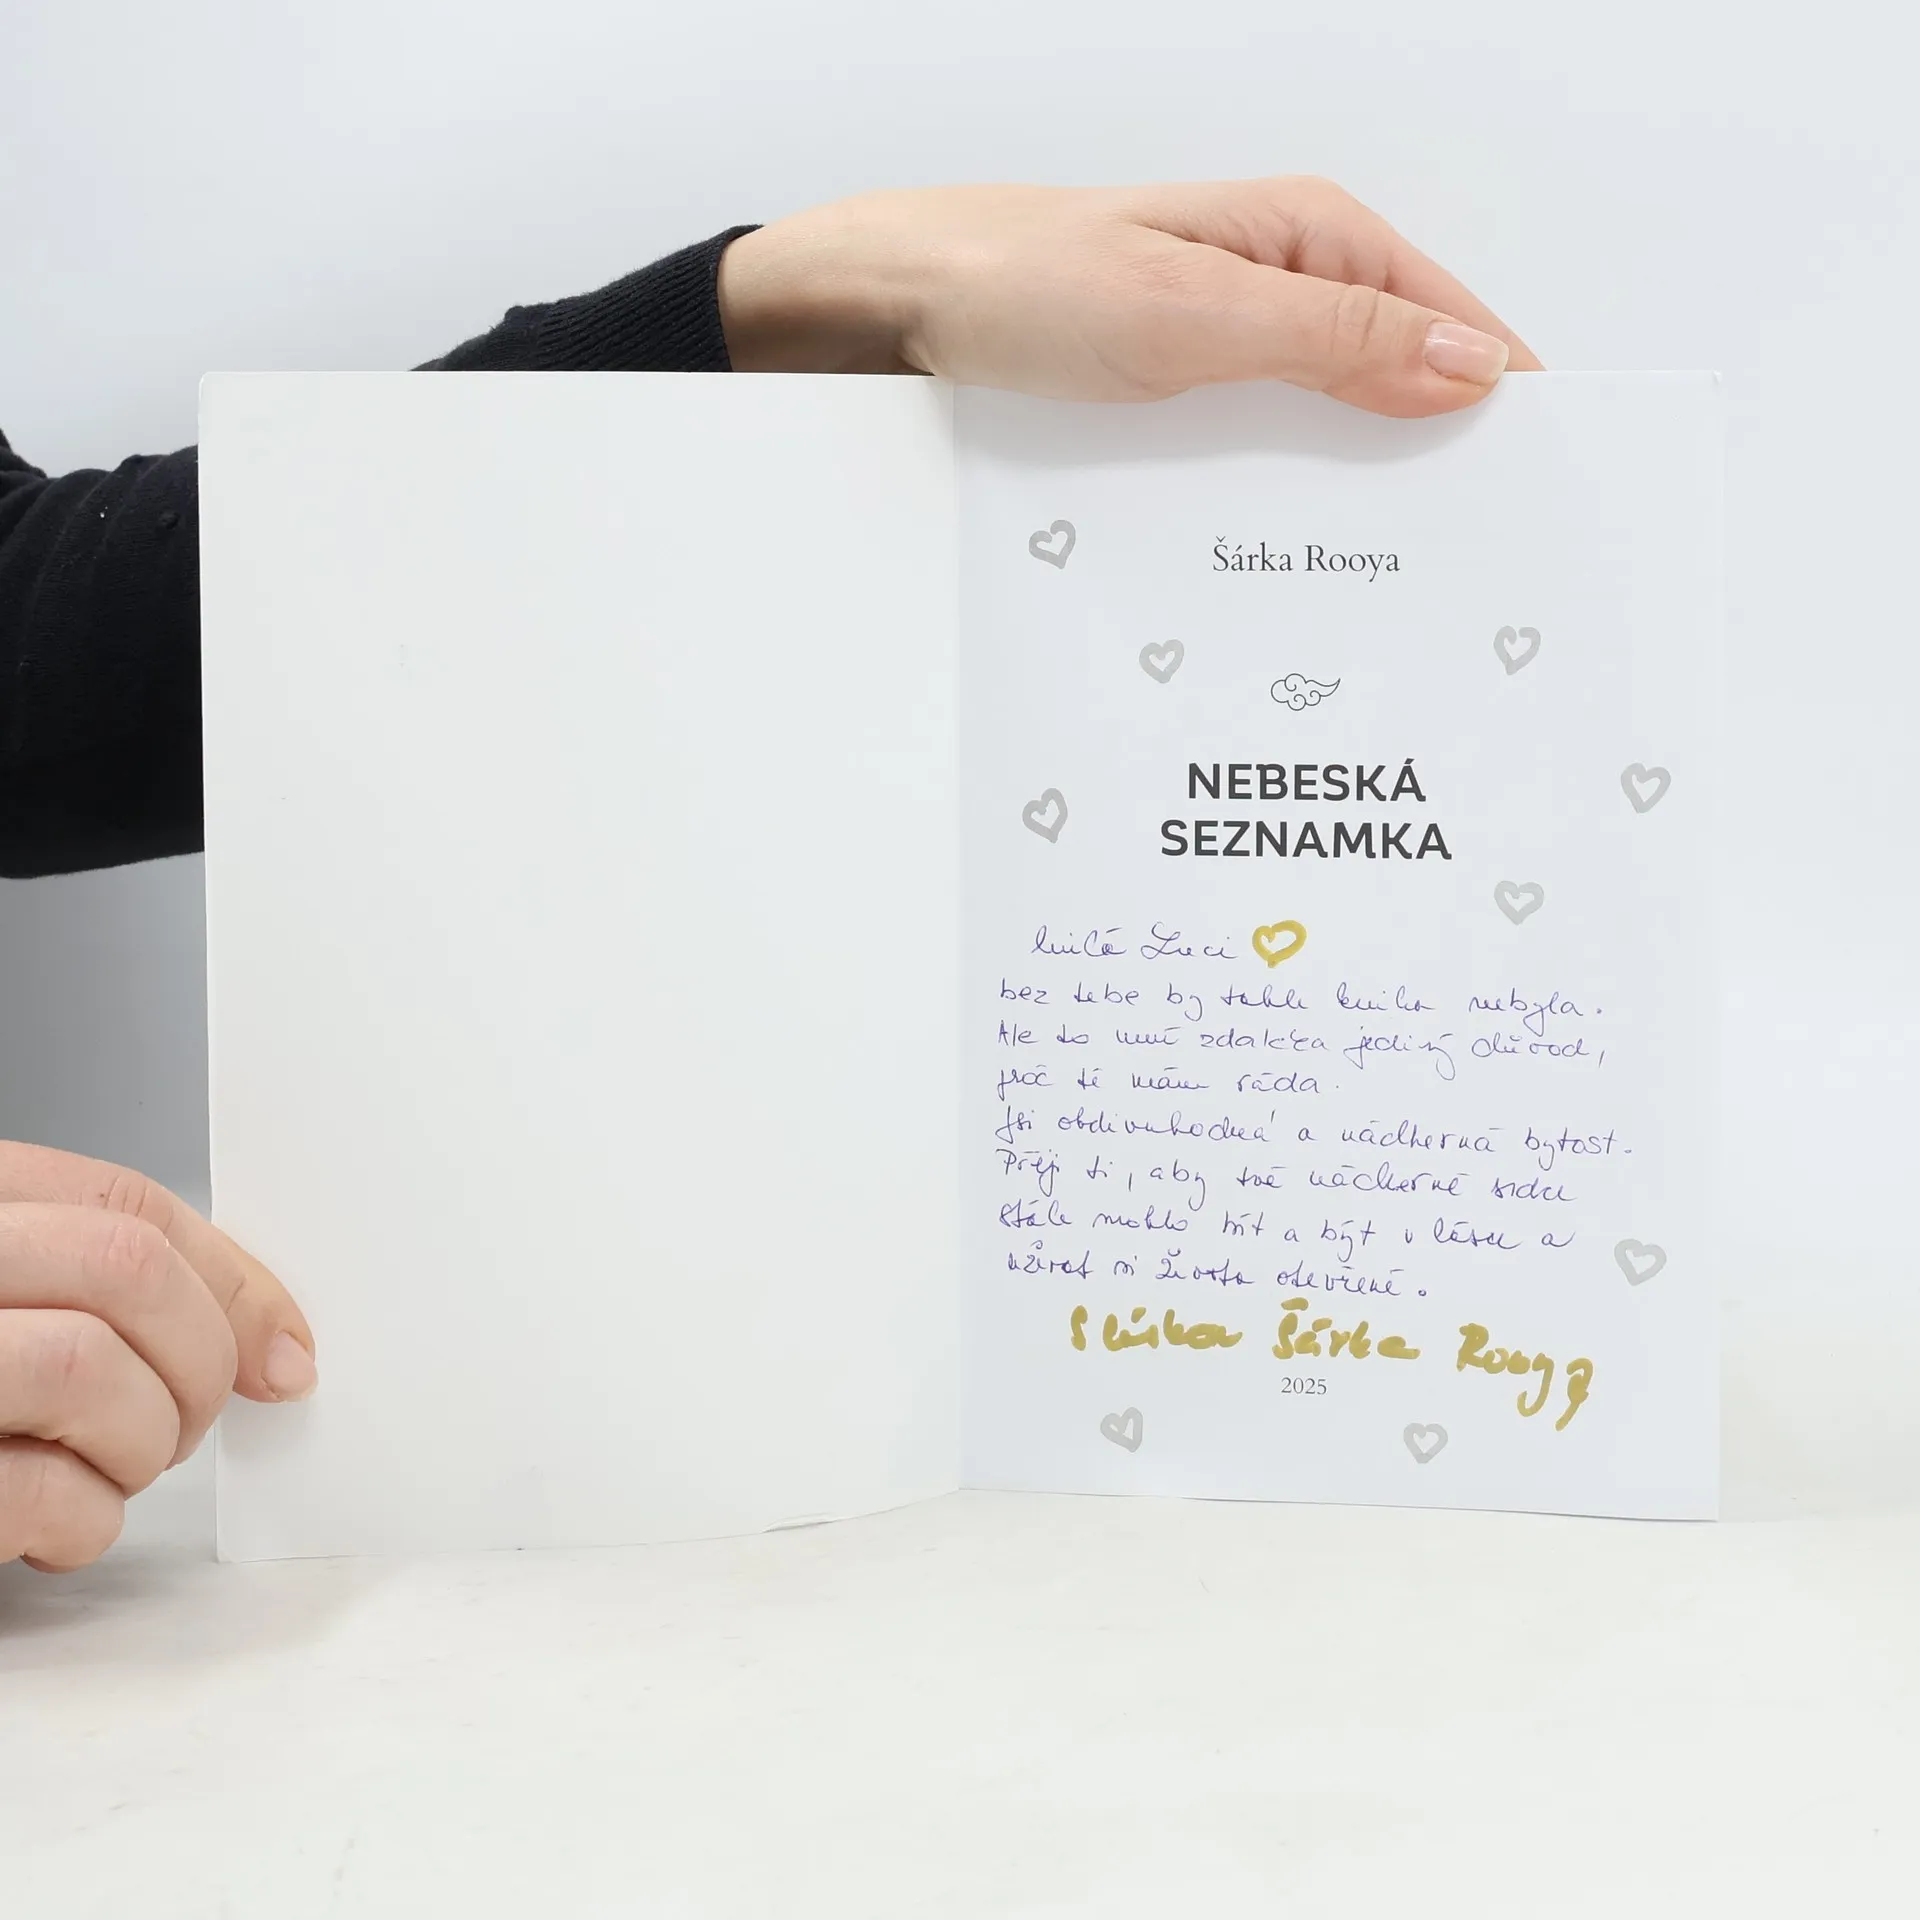 Šárka Rooya
NEBESKÁ
SEZNAMKA
milá Luci
bez tebe by tahle kniha nebyla.
Ale to není zdaleka jediný důvod,
proč tě mám ráda.
Jsi obdivuhodná a nádherná bytost.
Přeji ti, aby tvé nádherné srdce
stále mohlo být a být v lásce a
užívat si života otevřeně.
S láskou Šárka Rooya
2025